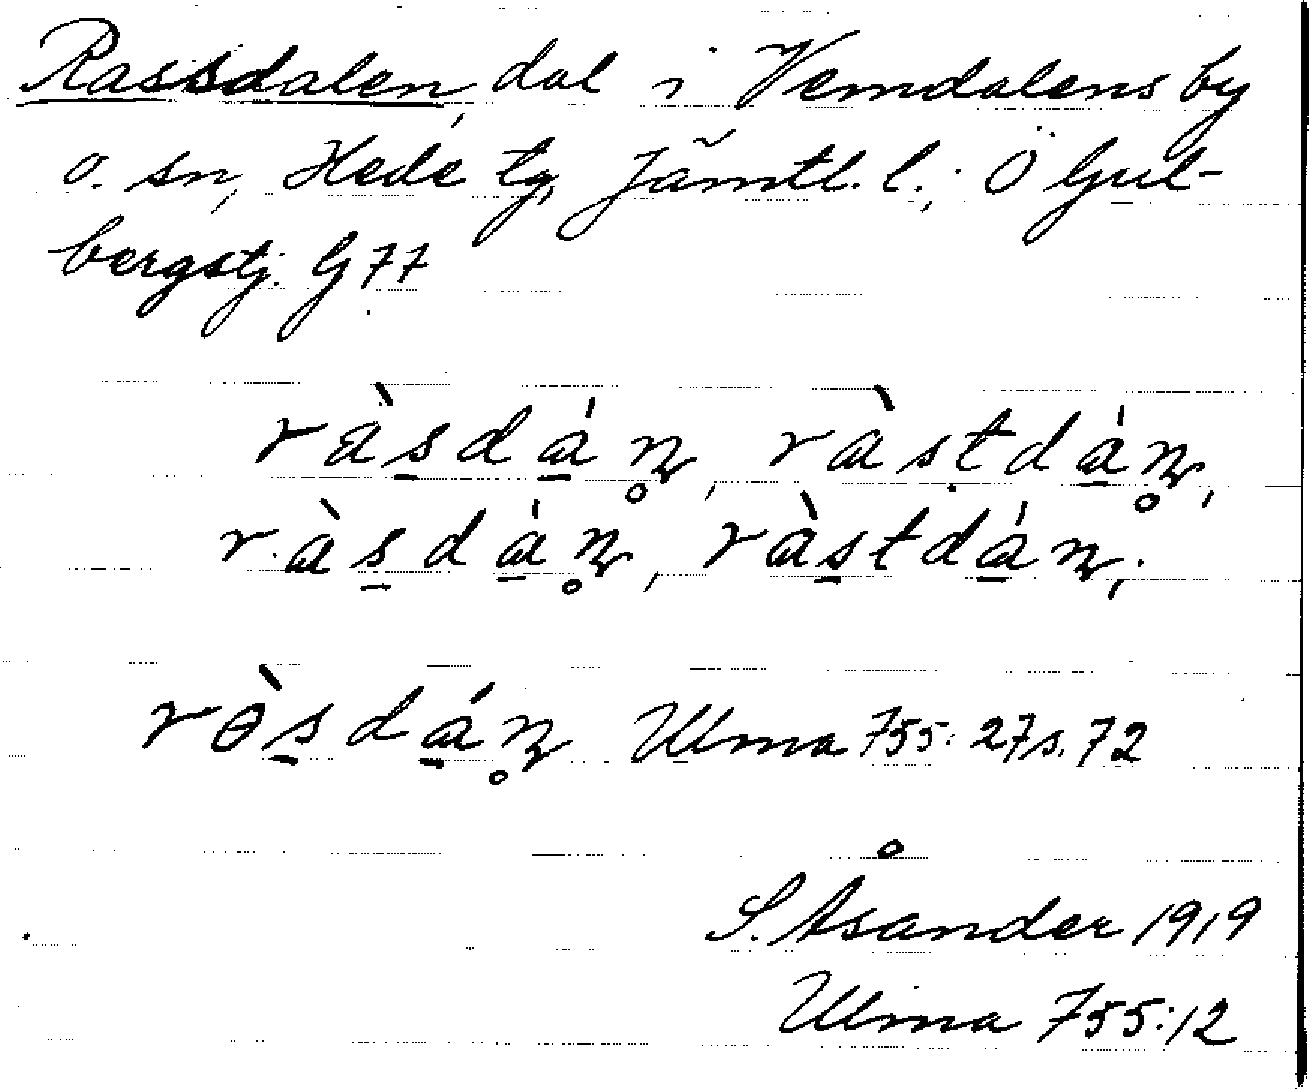 Rassdalen, dal i Vemdalens by
o. sn, Hede tg, Jämtl. l.; Ö Gjul-
bergstj. G 77
ràs̲dá̲n̥, ràstdá̲n̥,
ràs̲dá̲n̥, ràs̲tdá̲n,;
rɵ̀s̲dá̲n̥ Ulma 755:27 s. 72
S. Åsander 1919
Ulma 755:12